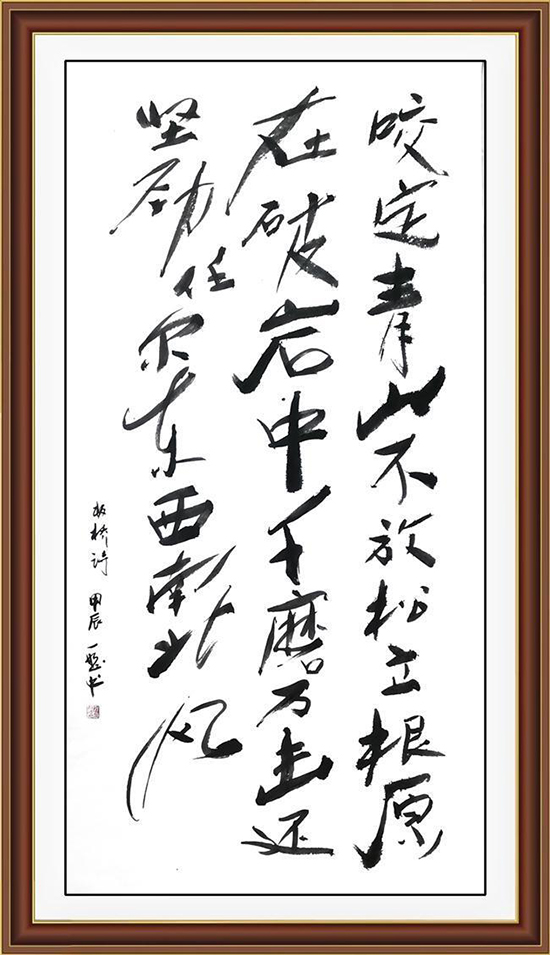 咬定青山不放松立根原
在破岩中千磨万击还
坚劲任尔东西南北风
板桥诗 甲辰一书